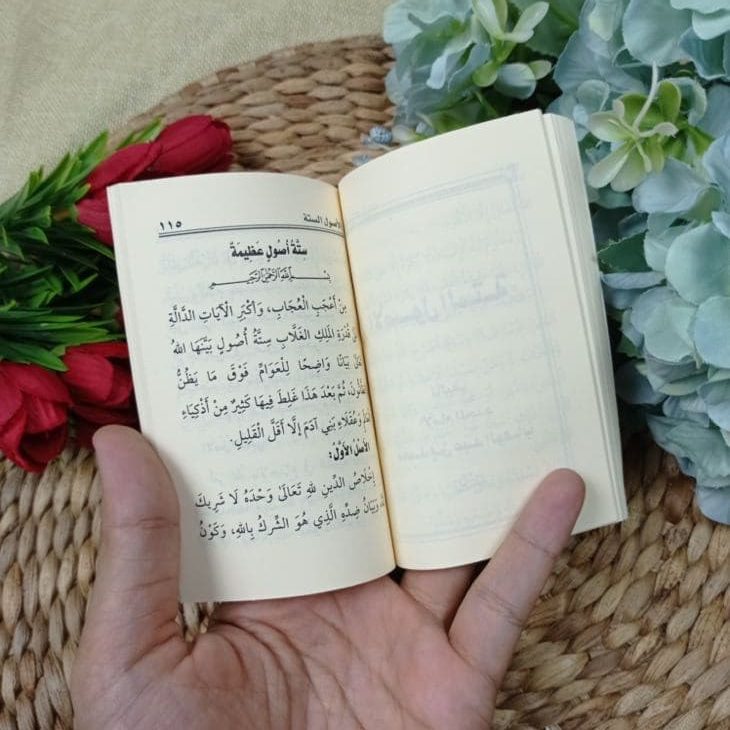 الأصول الستة ١١٥
ستة أصول عظيمة
بسم الله الرحمن الرحيم
مِنْ أَعْجَبِ الْعُجَابِ، وَأَكْبَرِ الْآيَاتِ الدَّالَّةِ
قُدْرَةِ الْمَلِكِ الغَلَّابِ سِتَّةُ أُصُولٍ بَيَّنَهَا اللهُ
بَيَانًا وَاضِحًا لِلْعَوَامِّ فَوْقَ مَا يَظُنُّ
الظَّانُّونَ، ثُمَّ بَعْدَ هَذَا غَلِطَ فِيهَا كَثِيرٌ مِنْ أَذْكِيَاءِ
وَعُقَلَاءِ بَنِي آدَمَ إِلَّا أَقَلَّ الْقَلِيلِ.
الأَصْلُ الأَوَّلُ:
إِخْلَاصُ الدِّينِ لله تَعَالَىٰ وَحْدَهُ لَا شَرِيكَ
وَبَيَانُ ضِدِّهِ الَّذِي هُوَ الشِّرْكُ بِاللهِ، وَكَوْنُ